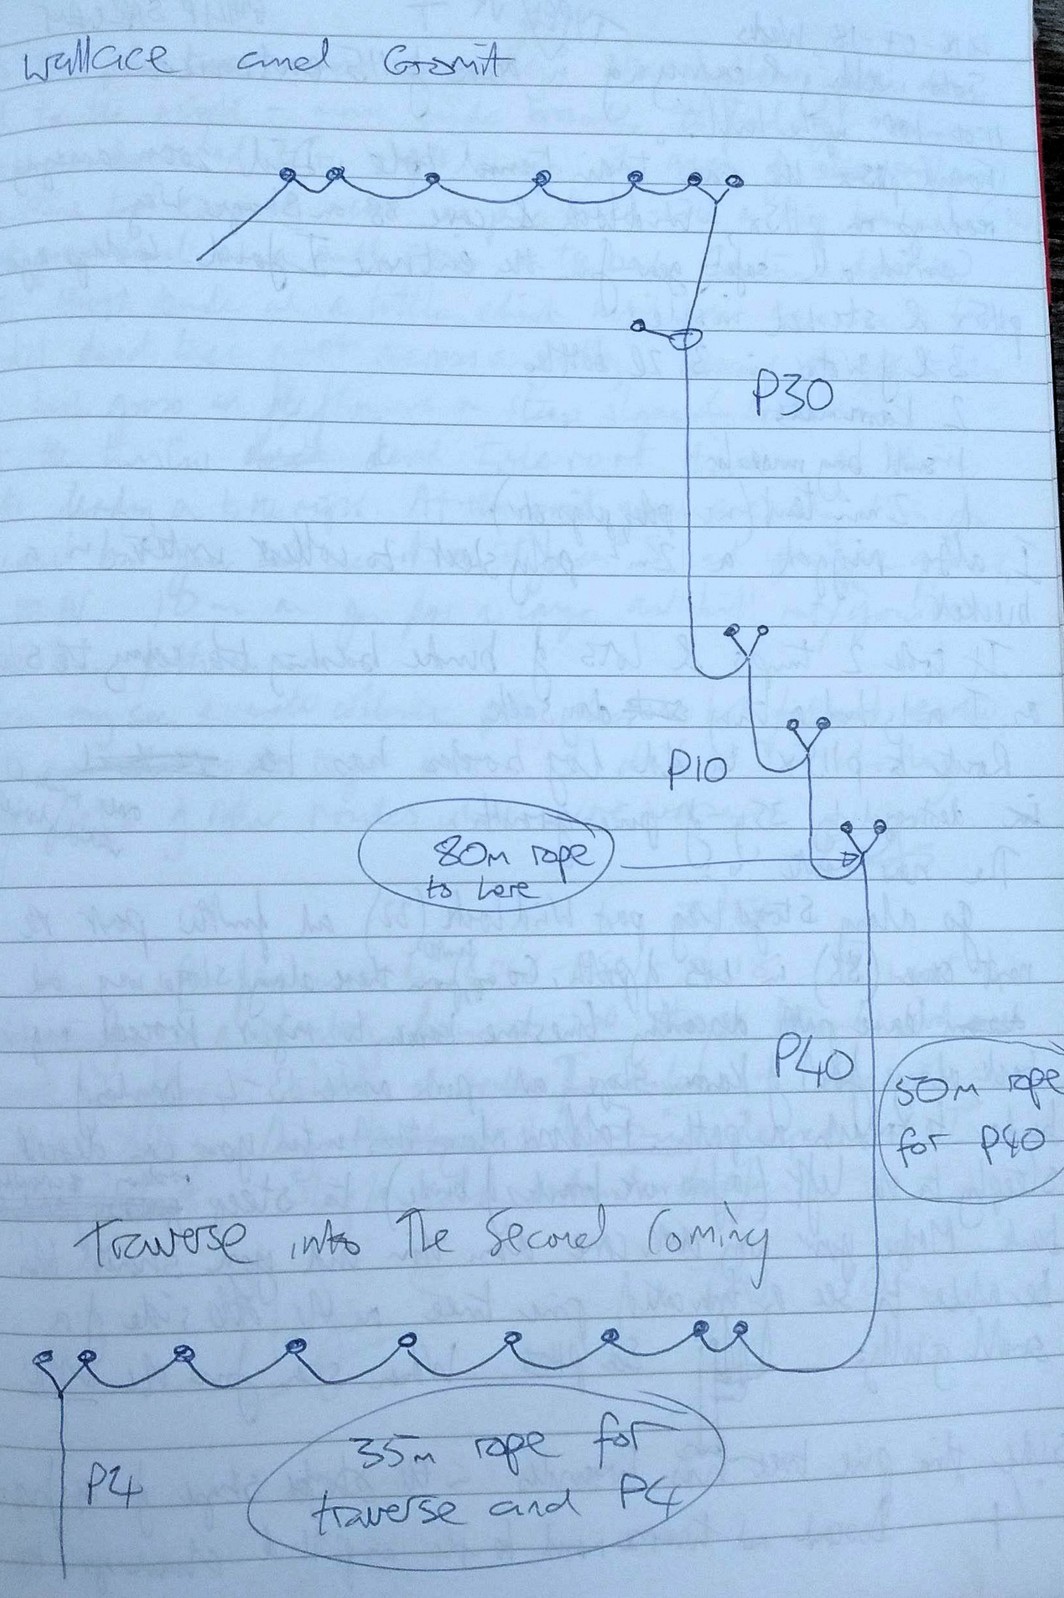 Wallace and Gromit
P30
P10
80m rope
to here
P40
50m rope
for P40
traverse into The Second Coming
35m rope for
traverse and P4
P4